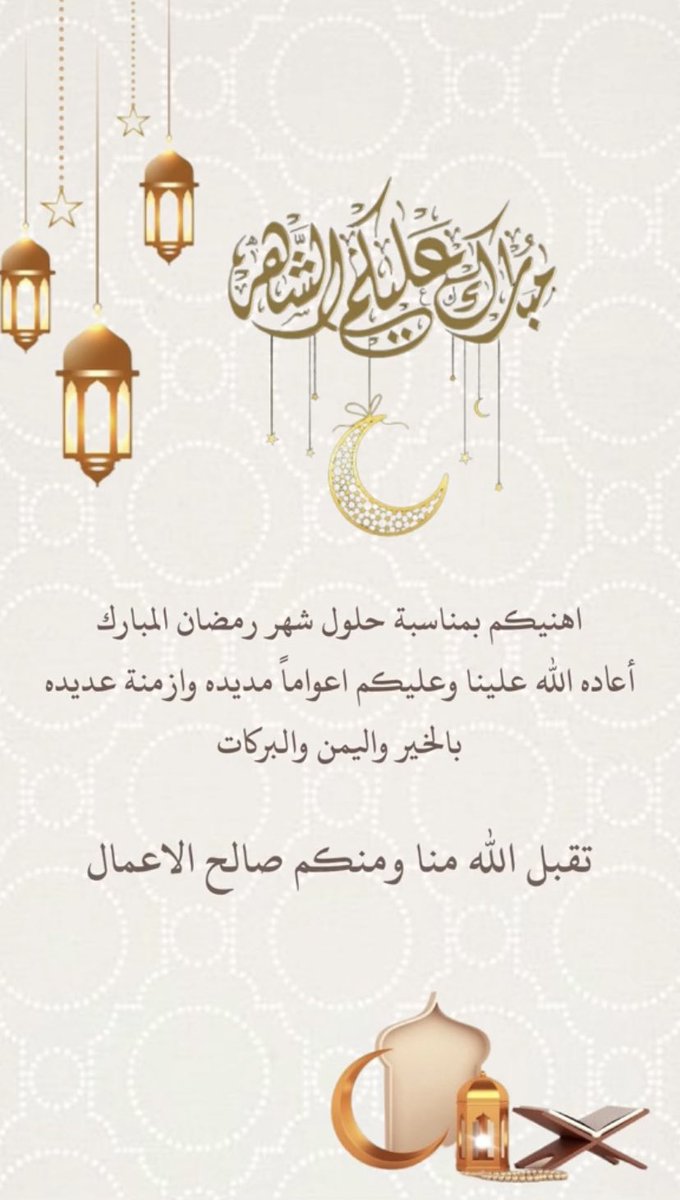 مُبَارَكٌ عَلَيكُم الشَّهر
اهنيكم بمناسبة حلول شهر رمضان المبارك
أعاده الله علينا وعليكم اعواماً مديده وازمنة عديده
بالخير واليمن والبركات
تقبل الله منا ومنكم صالح الاعمال